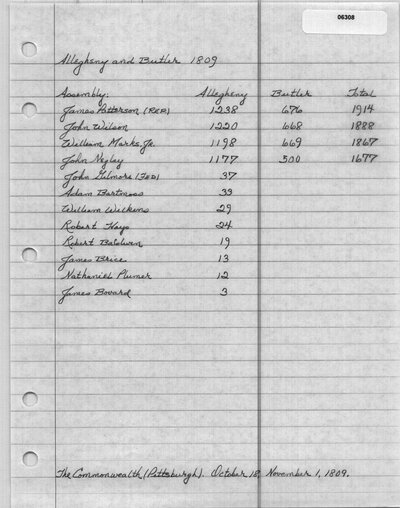 06308
Allegheny and Butler 1809
Assembly: Allegheny Butler Total
James Patterson (REP) 1238 676 1914
John Wilson 1220 668 1888
William Marks Jr. 1198 669 1867
John Negley 1177 500 1677
John Gilmore (FED) 37
Adam Bartmess 33
William Wilkens 29
Robert Hays 24
Robert Baldwin 19
James Brice 13
Nathaniel Plumer 12
James Bovard 3
The Commonwealth (Pittsburgh). October 18, November 1, 1809.